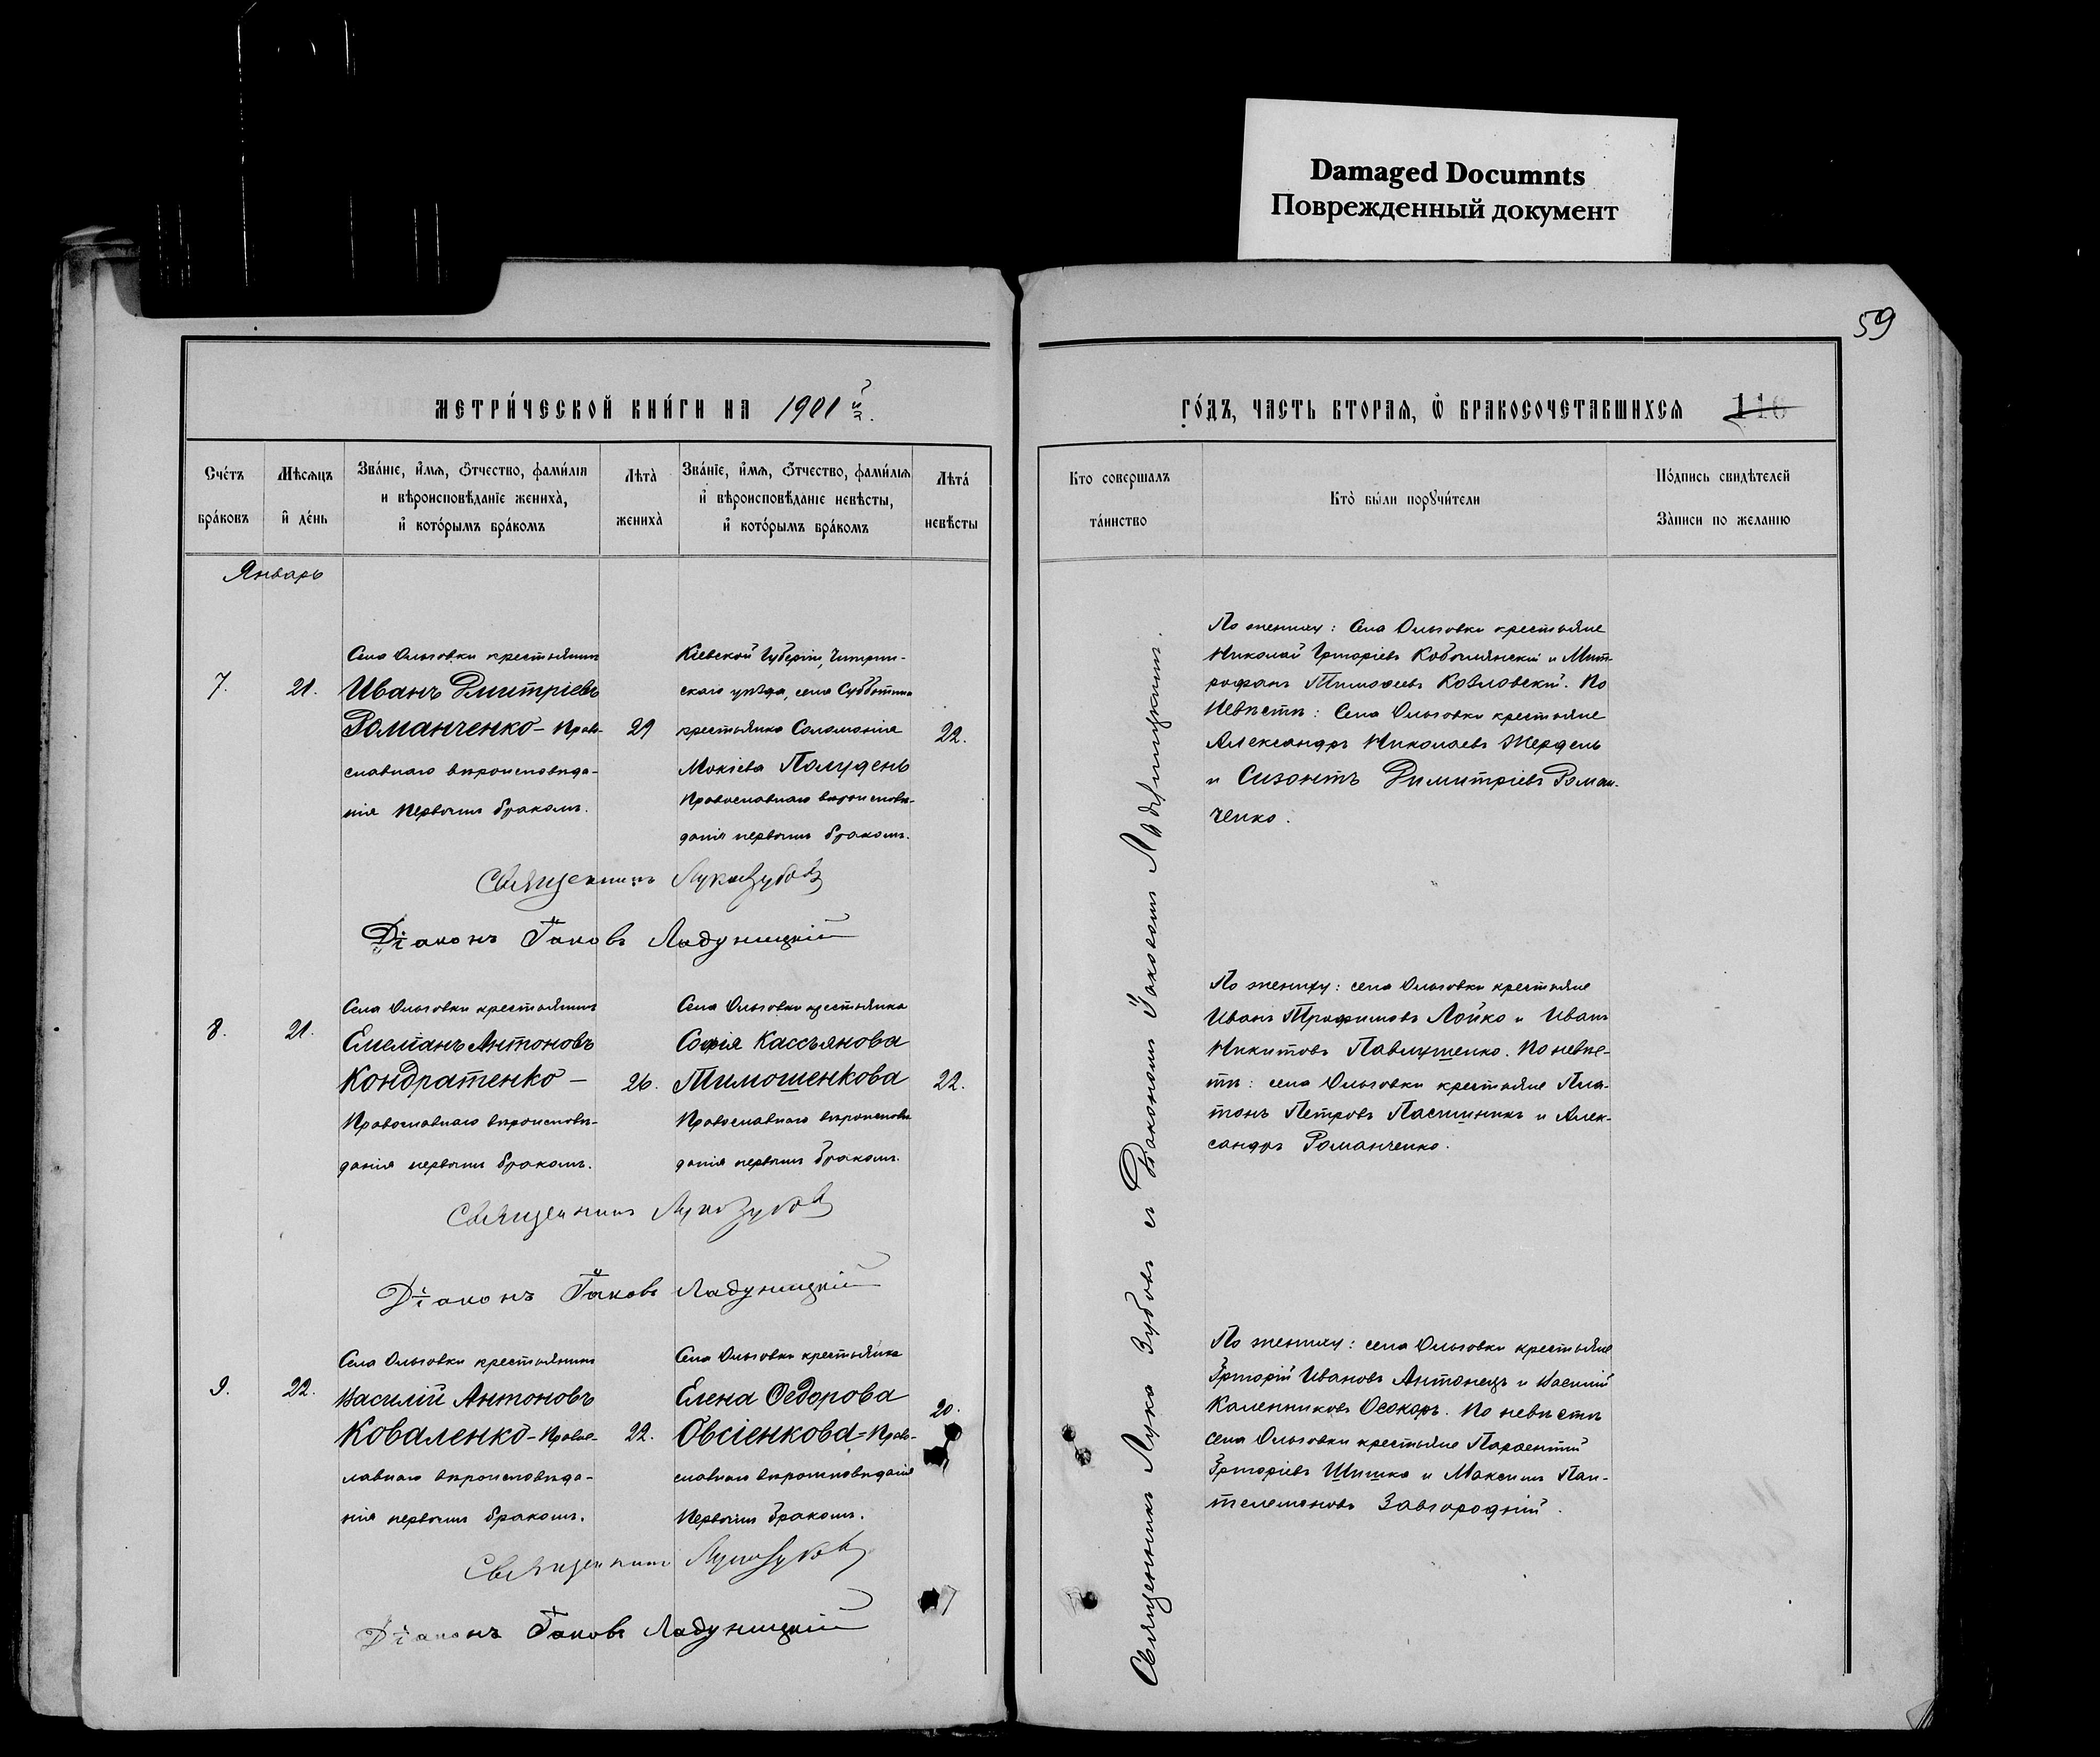 Damaged Documnts
Поврежденный документ
59
МЕТРИ́ЧЕСКОЙ КНИ́ГИ НА 1901 й
ГО́ДЪ, ЧАСТЬ ВТОРАЯ, Ѽ БРАКОСОЧЕТАВШИХСЯ 116
Сче́тъ бра́ковъ
Мѣсяцъ и де́нь
Зва́нїе, и҆́мя, ѻ҆́тчество, фами́лїя
и вѣроисповѣданїе жениха̀,
и҆ кото́рымъ бра́комъ
Лѣта̀ жениха̀
Зва́нїе, и҆́мя, ѻ҆́тчество, фами́лїя
и҆ вѣроисповѣданїе невѣсты,
и҆ кото́рымъ бра́комъ
Лѣта́ невѣ́сты
Кто совершалъ та́инство
Кто̀ бы́ли порꙋчи́тели
По́дпись свидѣтелей
За̀писи по желанїю
Январь
7.
21.
Села Ольговки крестьянинъ
Иванъ Дмитріевъ
Романченко - Право-
славнаго вѣроисповѣда-
нія первымъ бракомъ.
Кіевской Губерніи, Чигирин-
скаго уѣзда, села Субботина
крестьянка Саломонія
Мокіева Полудень
Православнаго вѣроисповѣ-
данія первымъ бракомъ.
22.
Священникъ Лука Зубовъ
Діаконъ Іаковъ Ладухицкій
По жениху: Села Ольговки крестьяне
Николай Григоріевъ Кобылянскій и Мит-
рофанъ Тимоѳеевъ Козловскій. По
Невѣстѣ: Села Ольговки крестьяне
Александръ Николаевъ Жердень
и Сизонтъ Димитріевъ Роман-
ченко.
8.
21.
Села Ольговки крестьянинъ
Емеліанъ Антоновъ
Кондратенко -
Православнаго вѣроисповѣ-
данія первымъ бракомъ.
26.
Села Ольговки крестьянка
Софія Кассьянова
Тимошенкова
Православнаго вѣроисповѣ
данія первымъ бракомъ.
22.
Священникъ Лука Зубовъ
Діаконъ Іаковъ
По жениху: села Ольговки крестьяне
Иванъ Трофимовъ Лойко и Иванъ
Никитовъ Павлушенко. По невѣс-
тѣ: села Ольговки крестьяне Пла-
тонъ Петровъ Пасишникъ и Алек-
сандръ Романченко.
9.
22.
Села Ольговки крестьянинъ
Василій Антоновъ
Коваленко - Правос-
лавнаго вѣроисповѣда-
нія первымъ бракомъ.
22.
Села Ольговки крестьянка
Елена Ѳедорова
Овсіенкова = Право-
славнаго вѣроисповѣданія
Первымъ бракомъ.
20.
Священникъ Лука Зубовъ
Діаконъ Іаковъ
По жениху: села Ольговки крестьяне
Григорій Ивановъ Антонецъ и Василій
Каленниковъ Осокоръ. По невѣстѣ
села Ольговки крестьяне Парѳентій
Григоріевъ Шишка и Максимъ Пан-
телемоновъ Завгородній.
Священникъ Лука Зубовъ съ Діакономъ Іаковомъ